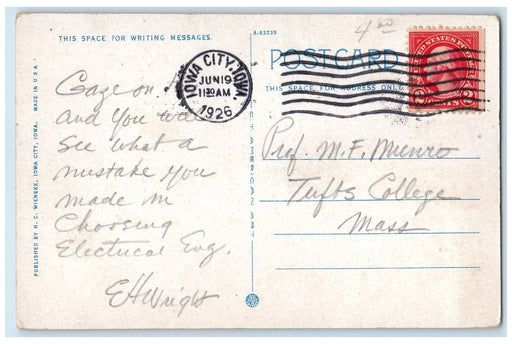 THIS SPACE FOR WRITING MESSAGES.
A-93239
4.00
POSTCARD
THIS SPACE FOR ADDRESS ONLY
IOWA CITY, IOWA.
JUN 19
11 AM
1926
UNITED STATES POSTAGE
2 CENTS 2
Gaze on
and you will
see what a
mistake you
made in
choosing
Electrical Eng.
EHWright
Prof. M.F. Munro
Tufts College
Mass
PUBLISHED BY H. C. WIENEKE, IOWA CITY, IOWA. MADE IN U.S.A.